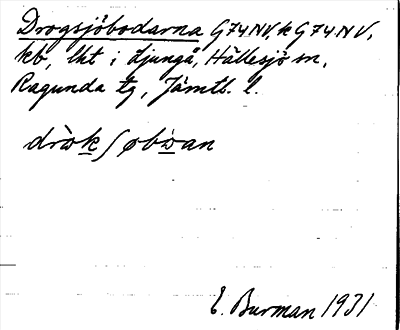 Drogsjöbodarna G74NV, k G74NV,
kb, lht i Ljungå, Hällesjö sn,
Ragunda tg, Jämtl. l.
dròkʃøbòan
E. Burman 1931